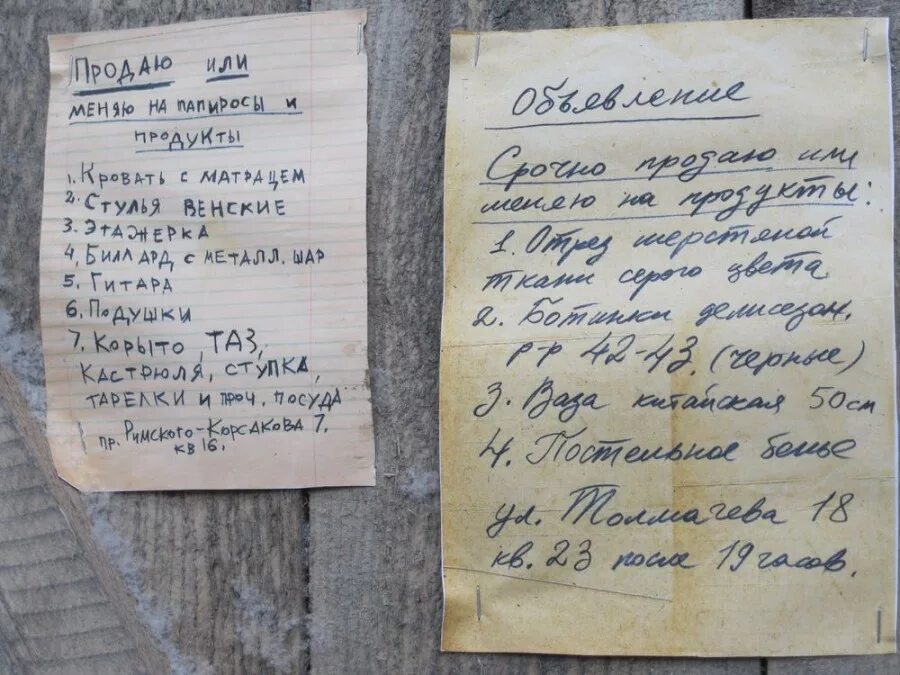 Продаю или
меняю на папиросы и
продукты
1. Кровать с матрацем
2. Стулья венские
3. Этажерка
4, Биллард с металл. шар
5. Гитара
6. Подушки
7. Корыто, таз,
кастрюля, ступка,
тарелки и проч, посуда
пр. Римского-Корсакова 7.
кв 16.
Объявление
Срочно продаю или
меняю на продукты:
1. Отрез шерстяной
ткани серого цвета
2. Ботинки демисезон.
р-р 42-43. (черные)
3. Ваза китайская 50 см
4. Постельное белье
ул. Толмачева 18
кв. 23 после 19 часов.